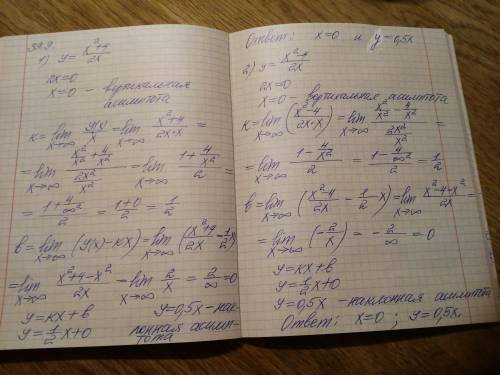 399
1) y = x²+4 / 2x
2x=0
x=0 - вертикальная
асимптота
к = lim x→∞ y(x)/x = lim x→∞ x²+4 / 2x·x =
= lim x→∞ (x²/x² + 4/x²) / (2x²/x²) = lim x→∞ (1 + 4/x²) / 2 =
= (1 + 4/∞²) / 2 = 1+0 / 2 = 1/2
в = lim x→∞ (y(x) - кx) = lim x→∞ (x²+4 / 2x - 1/2 x)
= lim x→∞ x²+4-x² / 2x = lim x→∞ 2/x = 2/∞ = 0
y = кx + в
y = 1/2 x + 0
y = 0,5x - нак-
лонная асимп-
тота
Ответ: x=0 и y=0,5x
2) y = x²-4 / 2x
2x=0
x=0 - вертикальная асимптота
к = lim x→∞ (x²-4 / 2x·x) = lim x→∞ (x²/x² - 4/x²) / (2x²/x²) =
= lim x→∞ (1 - 4/x²) / 2 = (1 - 4/∞²) / 2 = 1/2
в = lim x→∞ (x²-4 / 2x - 1/2 x) = lim x→∞ x²-4-x² / 2x =
= lim x→∞ (-2/x) = -2/∞ = 0
y = кx + в
y = 1/2 x + 0
y = 0,5x - наклонная асимптота
Ответ: x=0 ; y=0,5x.